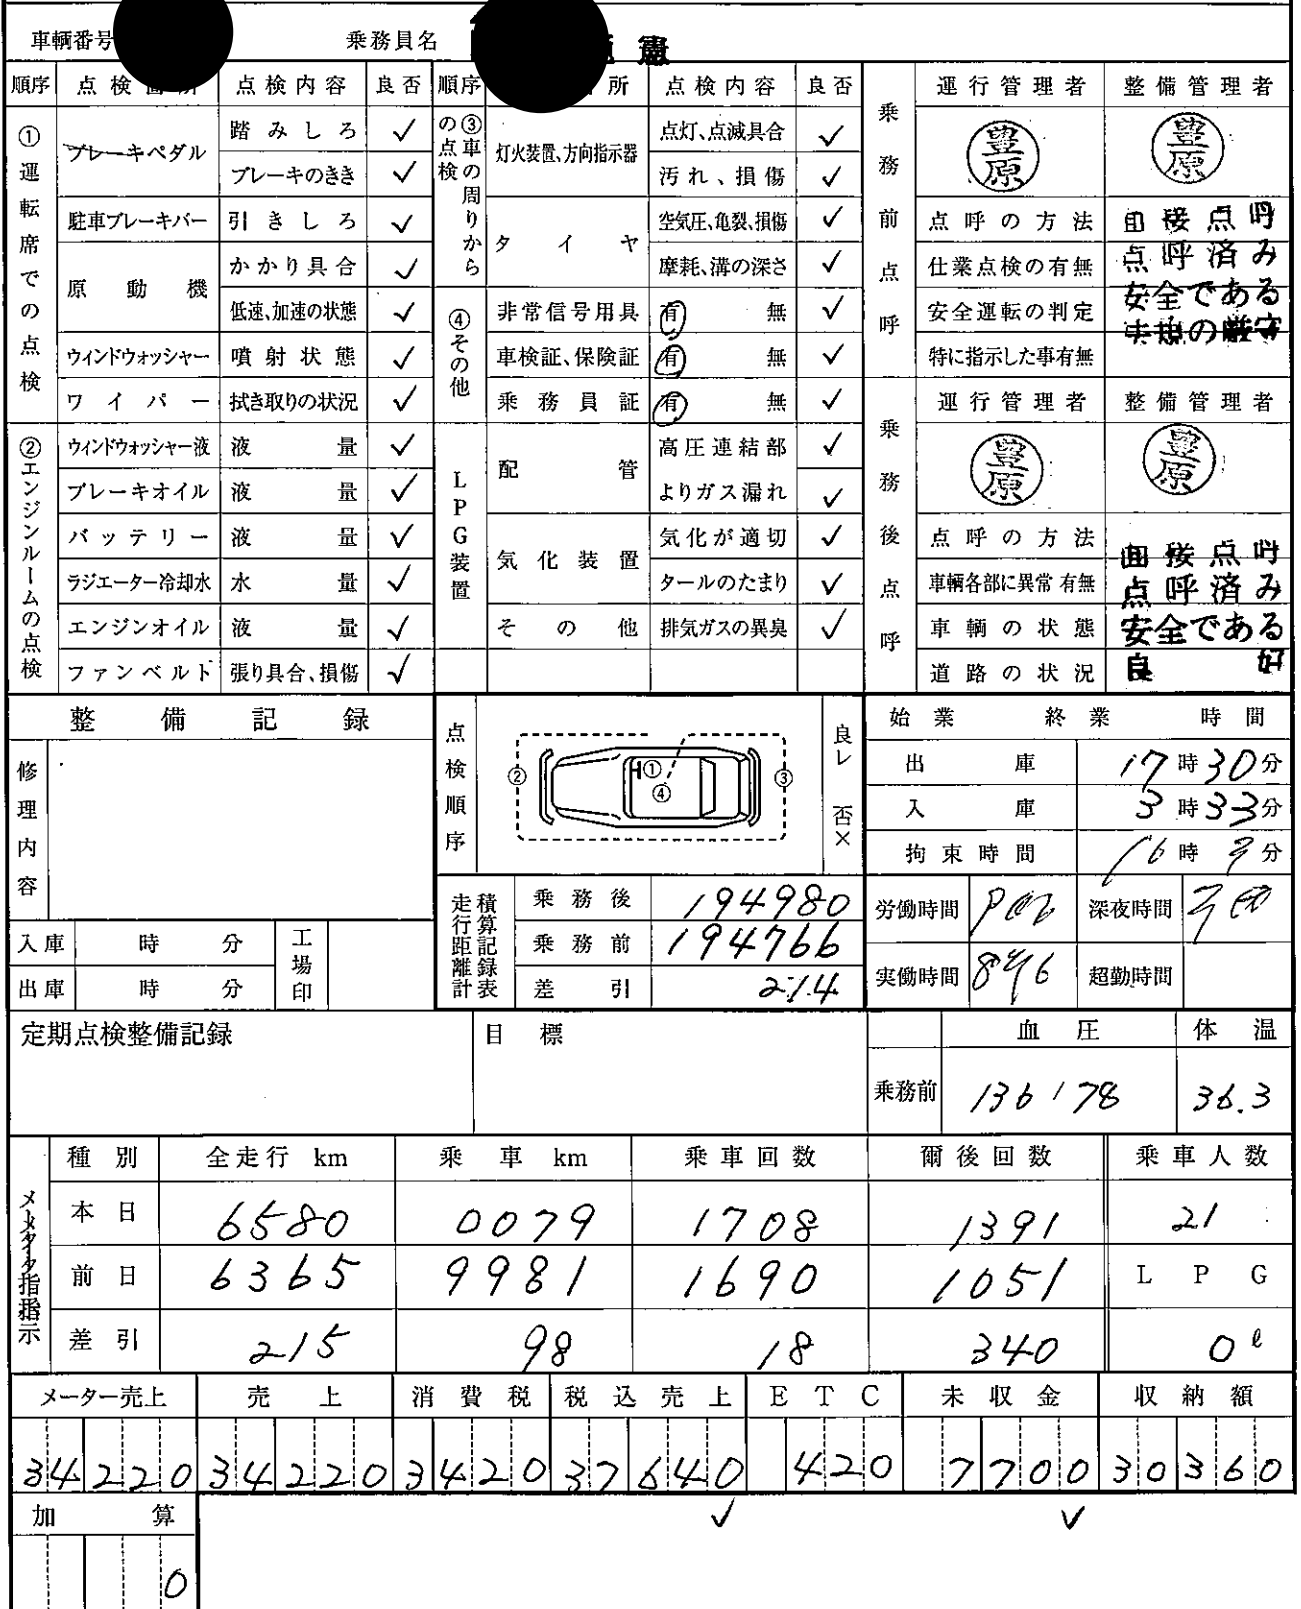 車輌番号 乗務員名 憲
順序 点検箇所 点検内容 良否 順序 所 点検内容 良否
①運転席での点検
ブレーキペダル 踏みしろ ✓
ブレーキのきき ✓
駐車ブレーキバー 引きしろ ✓
原動機 かかり具合 ✓
低速、加速の状態 ✓
ウィンドウォッシャー 噴射状態 ✓
ワイパー 拭き取りの状況 ✓
②エンジンルームの点検
ウィンドウォッシャー液 液量 ✓
ブレーキオイル 液量 ✓
バッテリー 液量 ✓
ラジエーター冷却水 水量 ✓
エンジンオイル 液量 ✓
ファンベルト 張り具合、損傷 ✓
③車の周りからの点検
灯火装置、方向指示器 点灯、点滅具合 ✓
汚れ、損傷 ✓
タイヤ 空気圧、亀裂、損傷 ✓
摩耗、溝の深さ ✓
④その他
非常信号用具 有 無 ✓
車検証、保険証 有 無 ✓
乗務員証 有 無 ✓
LPG装置
配管 高圧連結部 ✓
よりガス漏れ ✓
気化装置 気化が適切 ✓
タールのたまり ✓
その他 排気ガスの異臭 ✓
乗務前点呼
運行管理者 整備管理者
豊原 豊原
点呼の方法 面接点呼
仕業点検の有無 点呼済み
安全運転の判定 安全である
特に指示した事有無 法規の厳守
乗務後点呼
運行管理者 整備管理者
豊原 豊原
点呼の方法 面接点呼
車輌各部に異常 有無 点呼済み
車輌の状態 安全である
道路の状況 良好
整備記録
修理内容
入庫 時 分 工場印
出庫 時 分
点検順序
① ② ③ ④
良レ 否×
走行距離計積算記録表
乗務後 194980
乗務前 194766
差引 214
始業 終業 時間
出庫 17時30分
入庫 3時33分
拘束時間 16時 分
労働時間 深夜時間
実働時間 超勤時間
定期点検整備記録 目標
血圧 体温
乗務前 136/78 36.3
メーター指示
種別 全走行 km 乗車 km 乗車回数 爾後回数 乗車人数
本日 6580 0079 1708 1391 21
前日 6365 9981 1690 1051 LPG
差引 215 98 18 340 0ℓ
メーター売上 売上 消費税 税込売上 ETC 未収金 収納額
34220 34220 3420 37640 420 7700 30360
✓ ✓
加算
0